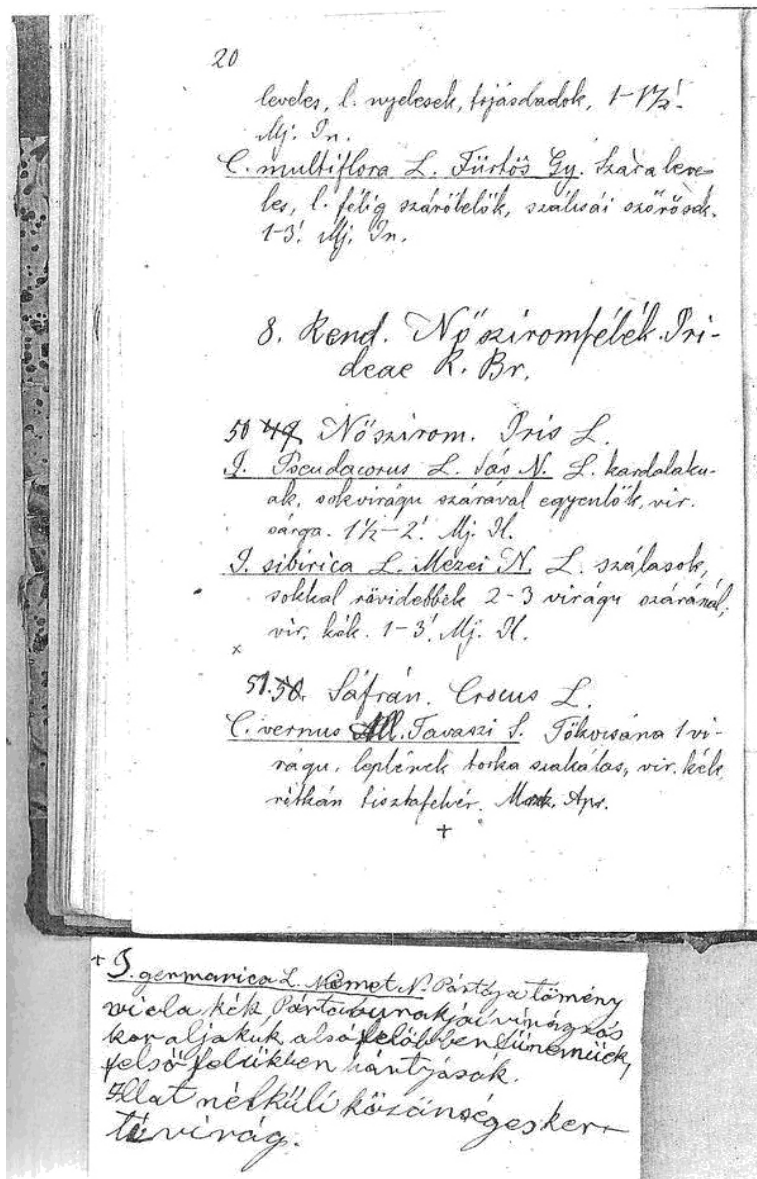 20
leveles, l. nyelesek, tojásdadok, 1-1½!
Mj. Jn.
C. multiflora L. Fürtös Gy. Szára leve-
les, l. félig szárölelők, szálisái szőrösek.
1-3! Mj. Jn.
8. Rend. Nősziromfélék. Iri-
deae R. Br.
50 49 Nőszirom. Iris L.
I. Pseudacorus L. Sás N. L. kardalaku-
ak, sokvirágu szárával egyenlők, vir.
sárga. 1½-2! Mj. Jl.
I. sibirica L. Mezei N. L. szálasok,
sokkal rövidebbek 2-3 virágu száránál;
vir. kék. 1-3! Mj. Jl.
x
51. 50. Sáfrán. Crocus L.
C. vernus All. Tavaszi S. Tőkocsána 1 vi-
rágu, leplének torka szakálas, vir. kék,
ritkán tisztafehér. Mz. Apr.
+
+ I. germanica L. Német N. Pártája tömény
viola kék, Pártaburokjai virágzás
kor aljakuk, alsó felökben fűneműek,
felső felükben hártyásak.
Illat nélküli közönséges ker-
ti virág.